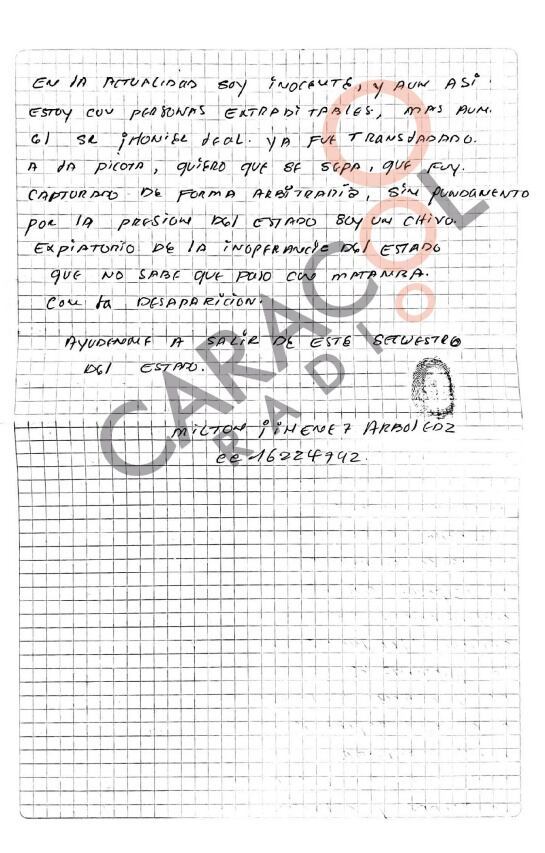 EN LA ACTUALIDAD SOY INOCENTE, Y AUN ASI.
ESTOY CON PERSONAS EXTRADITABLES, MAS AUN.
El SE leal. YA FUE TRANSDADADO.
A LA PICOTA, QUIERO QUE SE SEPA, QUE FUY.
CAPTURADO DE FORMA ARBITRADIA, SIN FUNDAMENTO
POR LA PRESION DEl ESTADO SOY UN CHIVO.
EXPIATORIO DE LA INOPERANCIE DEl ESTADO
QUE NO SABE QUE PASO CON MATAMBA.
CON la DESAPARICION.
AYUDENME A SALIR DE ESTE SECUESTRO
DEl ESTADO.
MILTON JIMENEZ ARBOLEDZ
CC 16224942.
CARACOL
RADIO